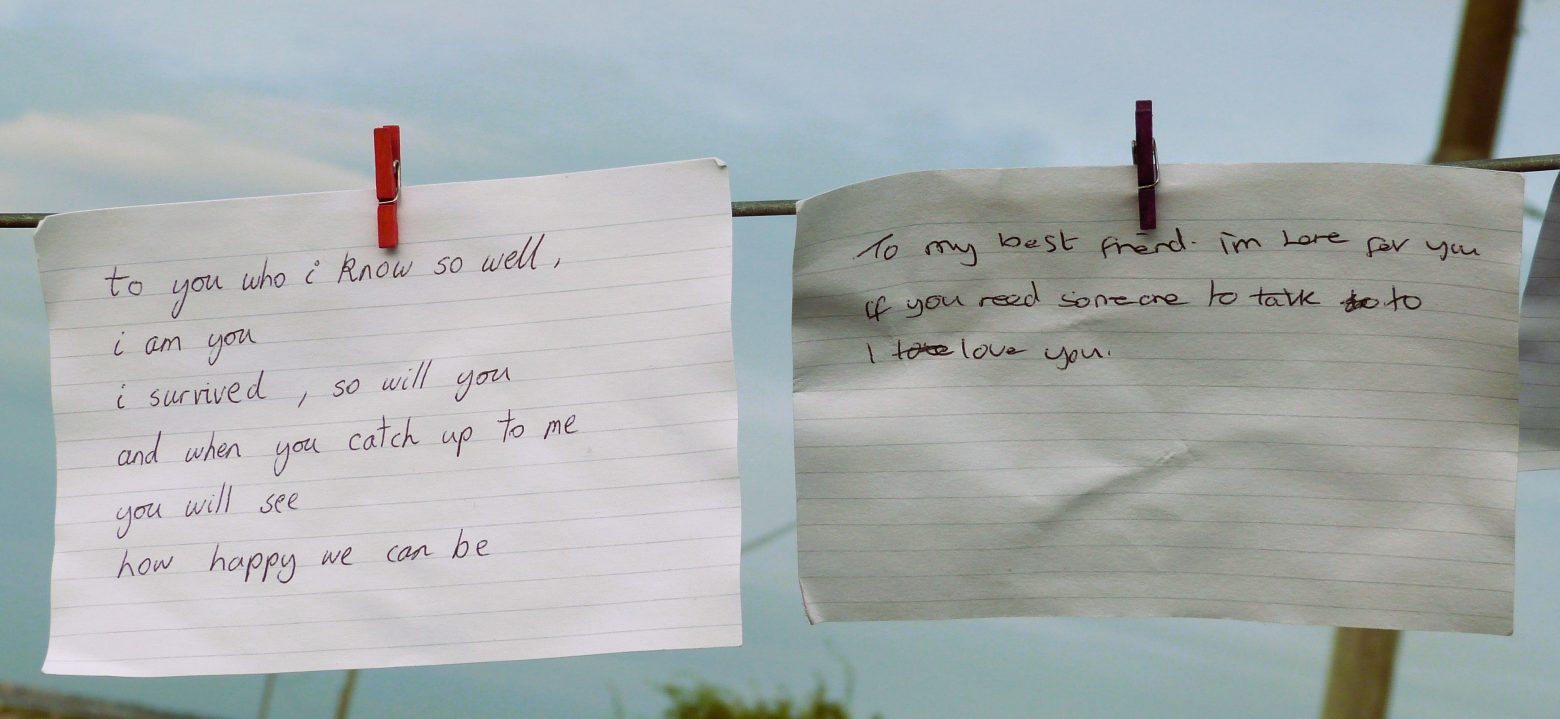 to you who i know so well,
i am you
i survived, so will you
and when you catch up to me
you will see
how happy we can be
To my best friend. im here for you
if you need someone to talk to
I love you.